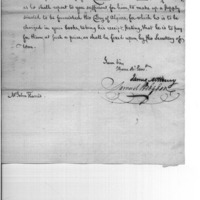 as he shall report to you sufficient for him, to make up a supply
should to be furnished the City of Alpine, for which he is to be
charged in your books, taking his receipt stating, that he is to pay
for them at such a price as shall be fixed upon by the Secretary of
War.
I am Sir
Samuel Hodgdon
Mr John Harris